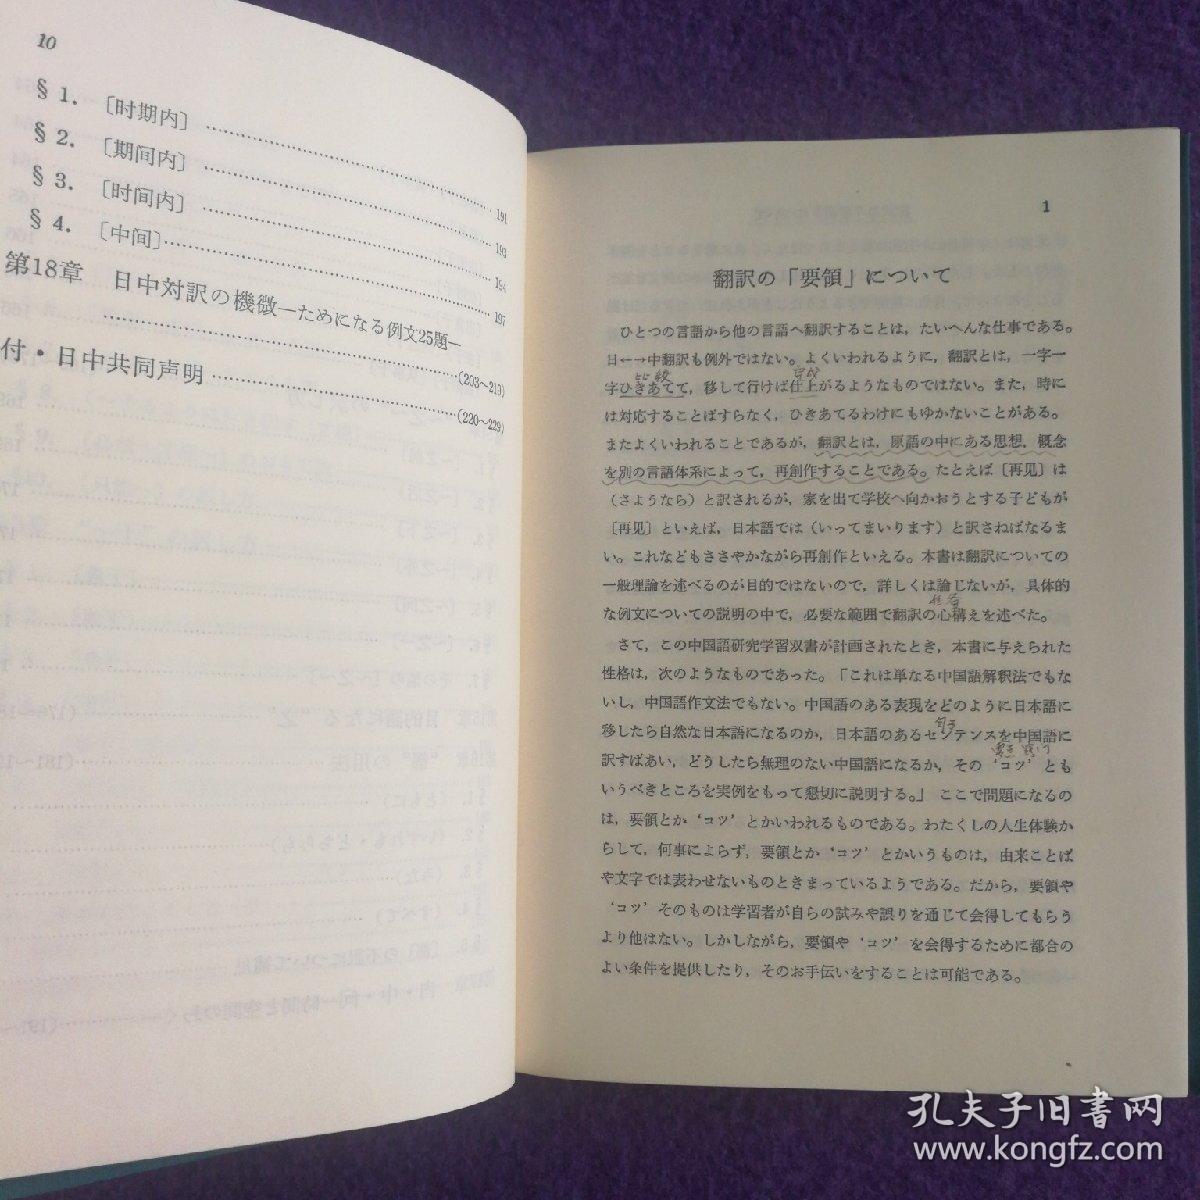 10
§1. 〔时期内〕 …… 191
§2. 〔期间内〕 …… 193
§3. 〔时间内〕 …… 194
§4. 〔中间〕 …… 197
第18章 日中対訳の機微—ためになる例文25題—
…… (203〜219)
付・日中共同声明 …… (220〜229)
1
翻訳の「要領」について
ひとつの言語から他の言語へ翻訳することは，たいへんな仕事である。
日←→中翻訳も例外ではない。よくいわれるように，翻訳とは，一字一
比較
字ひきあてて，移して行けば仕上がるようなものではない。また，時に
は対応することばすらなく，ひきあてるわけにもゆかないことがある。
またよくいわれることであるが，翻訳とは，原語の中にある思想，概念
を別の言語体系によって，再創作することである。たとえば〔再见〕は
（さようなら）と訳されるが，家を出て学校へ向かおうとする子どもが
〔再见〕といえば，日本語では（いってまいります）と訳さねばなるま
い。これなどもささやかながら再創作といえる。本書は翻訳についての
一般理論を述べるのが目的ではないので，詳しくは論じないが，具体的
な例文についての説明の中で，必要な範囲で翻訳の心構えを述べた。
さて，この中国語研究学習双書が計画されたとき，本書に与えられた
性格は，次のようなものであった。「これは単なる中国語解釈法でもな
いし，中国語作文法でもない。中国語のある表現をどのように日本語に
句子
移したら自然な日本語になるのか，日本語のあるセンテンスを中国語に
訳すばあい，どうしたら無理のない中国語になるか，その‘コツ’とも
いうべきところを実例をもって懇切に説明する。」ここで問題になるの
は，要領とか‘コツ’とかいわれるものである。わたくしの人生体験か
らして，何事によらず，要領とか‘コツ’とかいうものは，由来ことば
や文字では表わせないものときまっているようである。だから，要領や
‘コツ’そのものは学習者が自らの試みや誤りを通じて会得してもらう
より他はない。しかしながら，要領や‘コツ’を会得するために都合の
よい条件を提供したり，そのお手伝いをすることは可能である。
孔夫子旧书网
www.kongfz.com